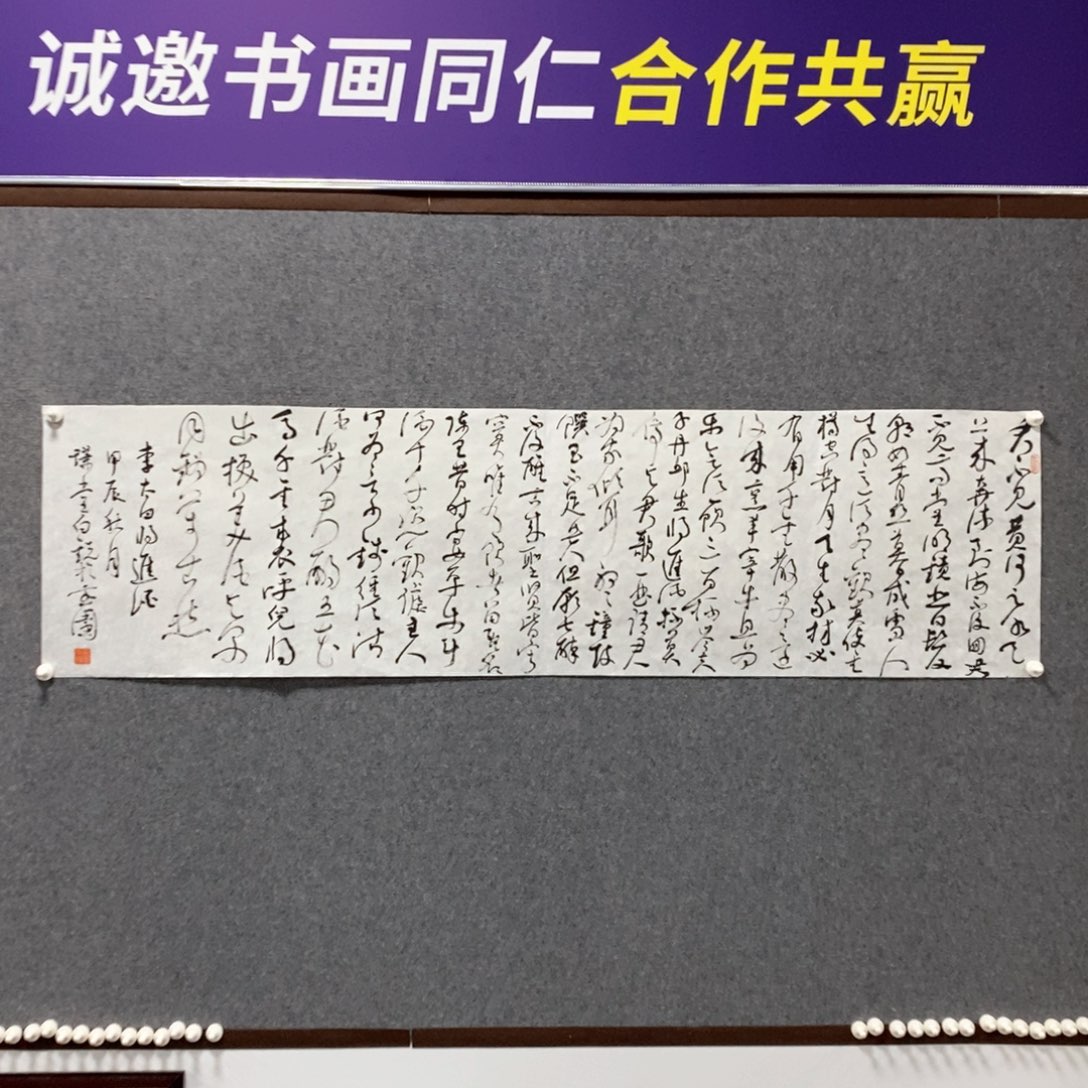 诚邀书画同仁合作共赢
君不见黄河之水天
上来奔流到海不复回君
不见高堂明镜悲白发
朝如青丝暮成雪人
生得意须尽欢莫使金
樽空对月天生我材必
有用千金散尽还
复来烹羊宰牛且为
乐会须一饮三百杯岑夫
子丹丘生将进酒杯莫
停与君歌一曲请君
为我倾耳听钟鼓
馔玉不足贵但愿长醉
不复醒古来圣贤皆寂
寞唯有饮者留其名
陈王昔时宴平乐斗
酒十千恣欢谑主人
何为言少钱径须沽
酒对君酌五花
马千金裘呼儿将
出换美酒与尔
同销万古愁
李太白将进酒
甲辰秋月